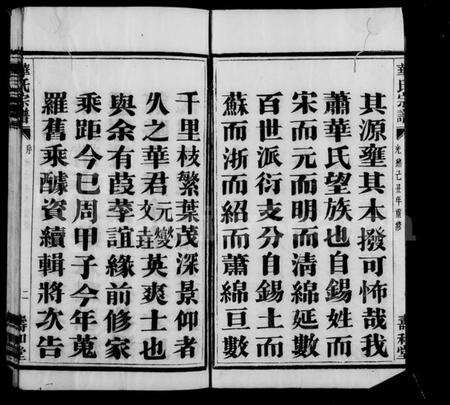 華氏宗譜
光緒己丑年重修
壽和堂
其源壅其本撥可怖哉我
蕭華氏望族也自錫姓而
宋而元而明而清綿延數
百世派衍支分自錫土而
蘇而浙而紹而蕭綿亘數
千里枝繁葉茂深景仰者
久之華君元燮文垚英爽士也
與余有葭莩誼緣前修家
乘距今已周甲子今年蒐
羅舊乘醵資續輯將次告
華氏宗譜
序
二
壽和堂